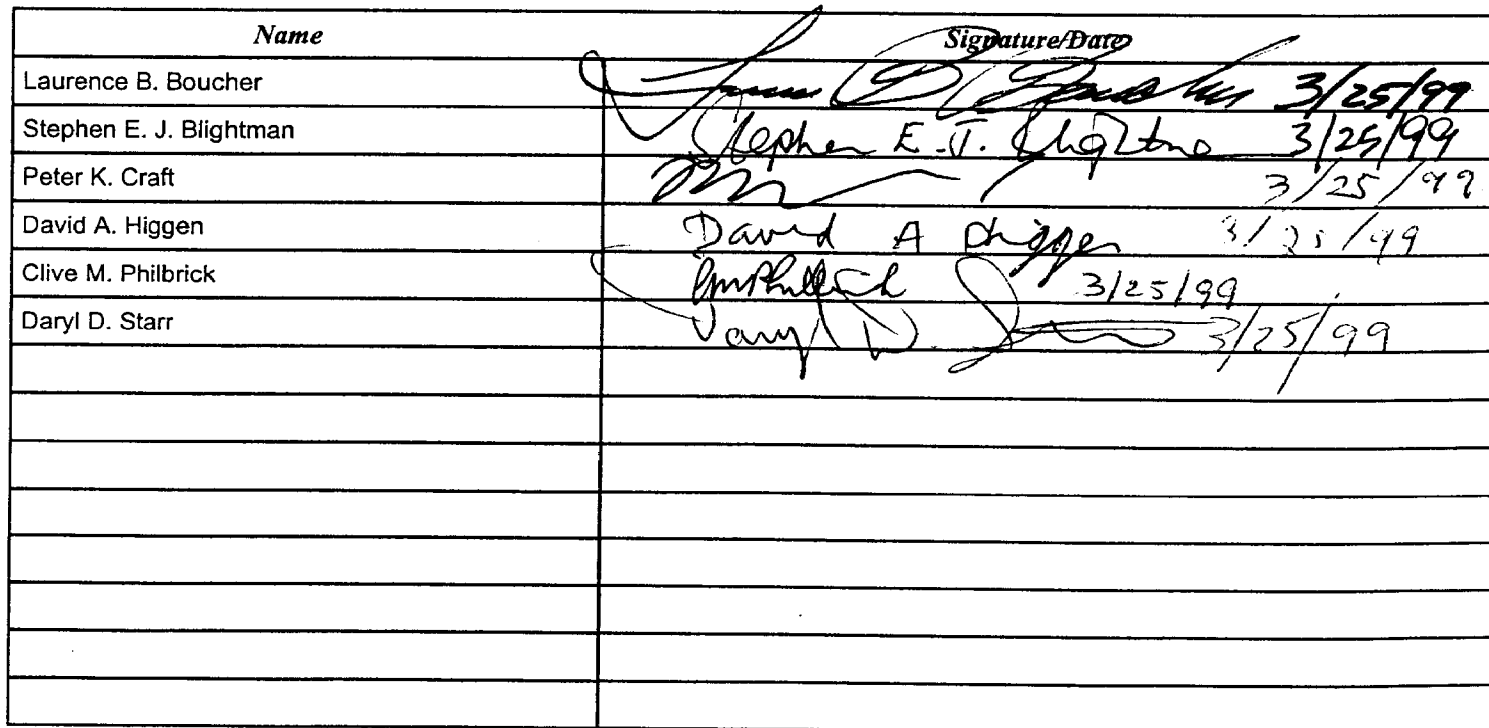 Name Signature/Date
Laurence B. Boucher 3/25/99
Stephen E. J. Blightman Stephen E. J. 3/25/99
Peter K. Craft 3/25/99
David A. Higgen David A Higgen 3/25/99
Clive M. Philbrick 3/25/99
Daryl D. Starr Daryl D. 3/25/99